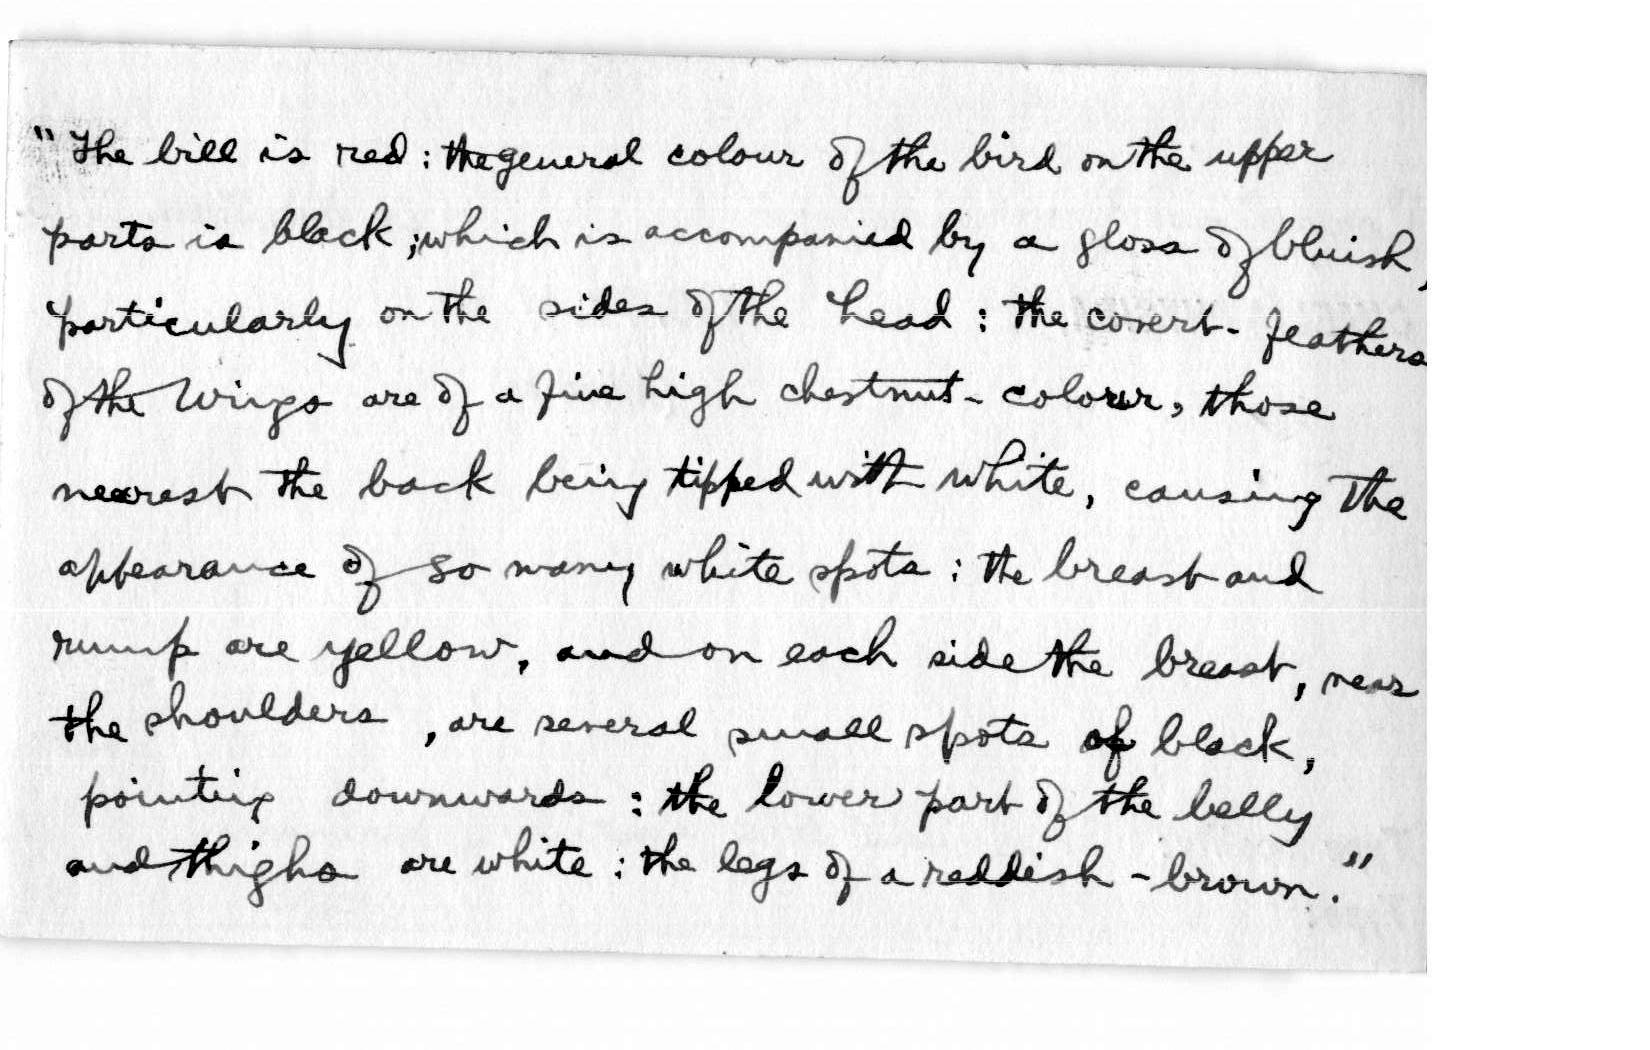 "The bill is red: the general colour of the bird on the upper
parts is black; which is accompanied by a gloss of bluish,
particularly on the sides of the head: the covert-feathers
of the wings are of a fine high chestnut-colour, those
nearest the back being tipped with white, causing the
appearance of so many white spots: the breast and
rump are yellow, and on each side the breast, near
the shoulders, are several small spots of black,
pointing downwards: the lower part of the belly
and thighs are white: the legs of a reddish-brown."